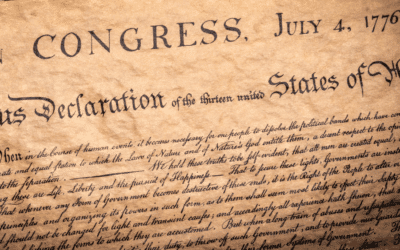 N CONGRESS, JULY 4, 1776
us Declaration of the thirteen united States of
When in the course of human events, it becomes necessary for one people to dissolve the political bands which have con
and equal station to which the Laws of Nature and of Nature's God entitle them, a decent respect to the opin
to the separation. We hold these truths to be self-evident, that all men are created equal,
these are Life, Liberty and the pursuit of Happiness. — That to secure these rights, Governments are
That whenever any Form of Government becomes destructive of these ends, it is the Right of the People to alter
principles and organizing its powers in such form, as to them shall seem most likely to effect
should not be changed for light and transient causes; and accordingly all experience hath shewn, that
the forms to which they are accustomed. But when a long train of abuses and
their duty, to throw off such Government, and to provide new Guards
Systems of Government.